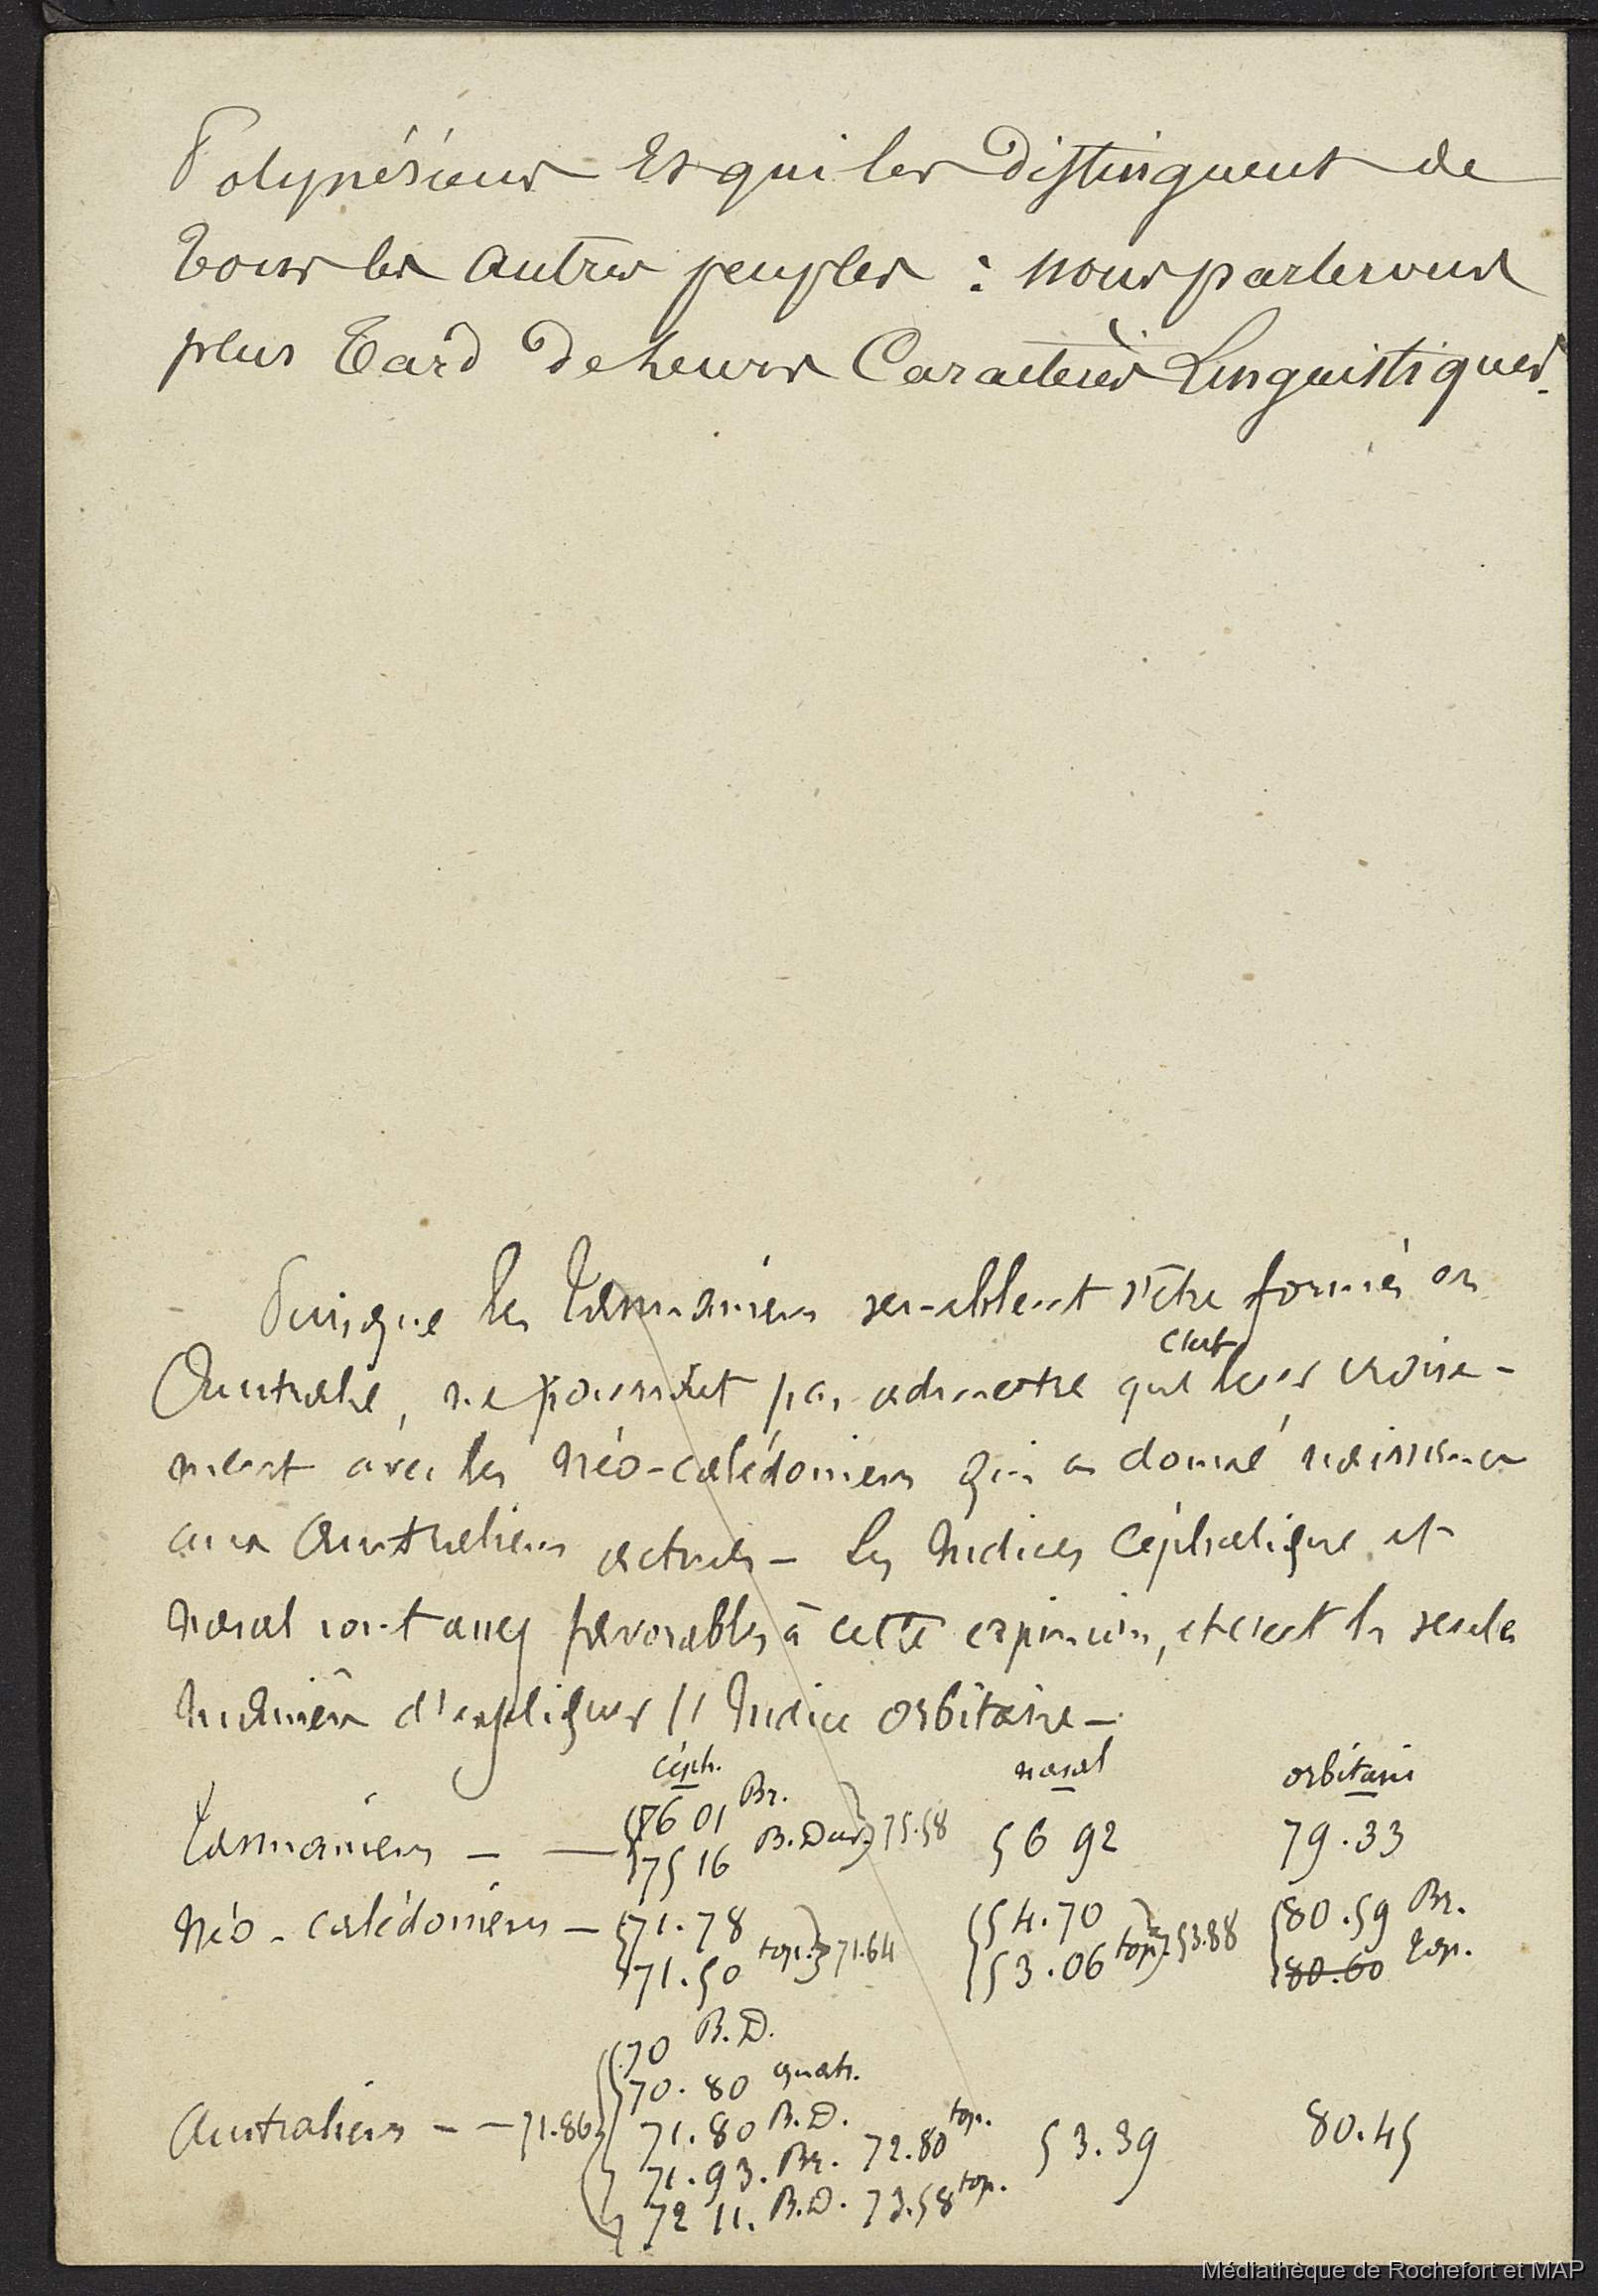 Polynésiens et qui les distinguent de
tous les autres peuples : nous parlerons
plus tard de leurs Caractères Linguistiques.
Puisque les Tasmaniens semblent s'être formés en
c'est
Australie, ne pourrait pas admettre que leur croise-
ment avec les Néo-calédoniens qui a donné naissance
aux Australiens actuels - les Indices Céphalique et
nasal sont assez favorables à cette opinion, et c'est la seule
manière d'expliquer l'Indice orbitaire -
céph. nasal orbitaire
Tasmaniens - — 76 01 Br. 56 92 79.33
75 16 B.Dav. 75.58
Néo-calédoniens - 71.78 54.70 80.59 Br.
71.50 top. 71.64 53.06 top. 53.88 80.60 top.
70 B.D.
70.80 quatr.
Australiens - - 71.86 71.80 B.D. 53.39 80.45
71.93. Br. 72.80 top.
72 11. B.D. 73.58 top.
Médiathèque de Rochefort et MAP